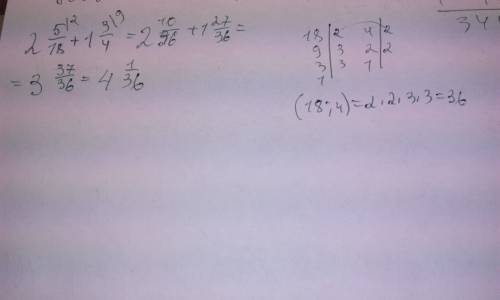 2 5/18 \2 + 1 3/4 \9 = 2 10/36 + 1 27/36 =
= 3 37/36 = 4 1/36
18 | 2 4 | 2
9 | 3 2 | 2
3 | 3 1
1
(18; 4) = 2, 2, 3, 3 = 36
34